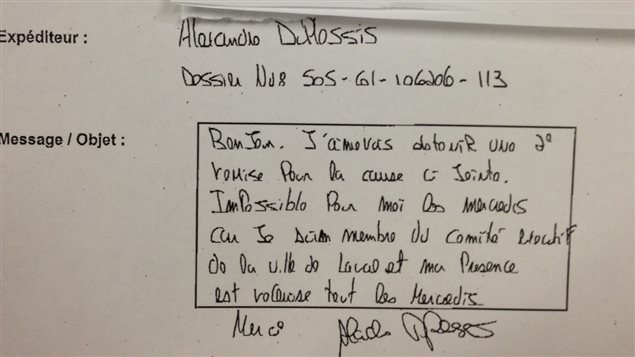 Expéditeur : Alexandre Duplessis
Dossier Nub 505-61-106206-113
Message / Objet :
Bonjour. J'aimerais obtenir une 2e
remise Pour la cause ci Jointe.
Impossible Pour moi les mercredis
car Je suis membre du comité executif
de la ville de Laval et ma Presence
est requise tout les Mercredis
Merci